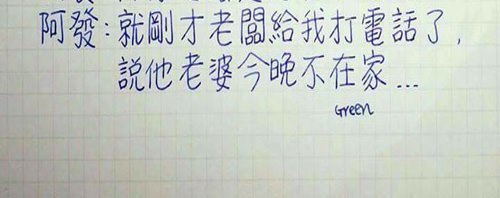 阿發:就剛才老闆給我打電話了,
說他老婆今晚不在家...
Green